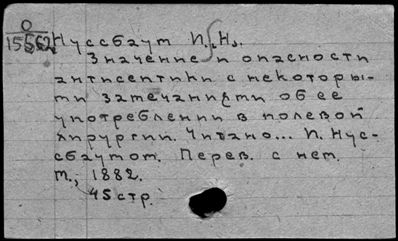 0
15562
Нуссбаум И.Н.
Значение и опасности
антисептики с некоторы-
ми замечаниями об ее
употреблении в полевой
хирургии. Читано... И. Нус-
сбаумом. Перев. с нем.
М., 1882.
45 стр.